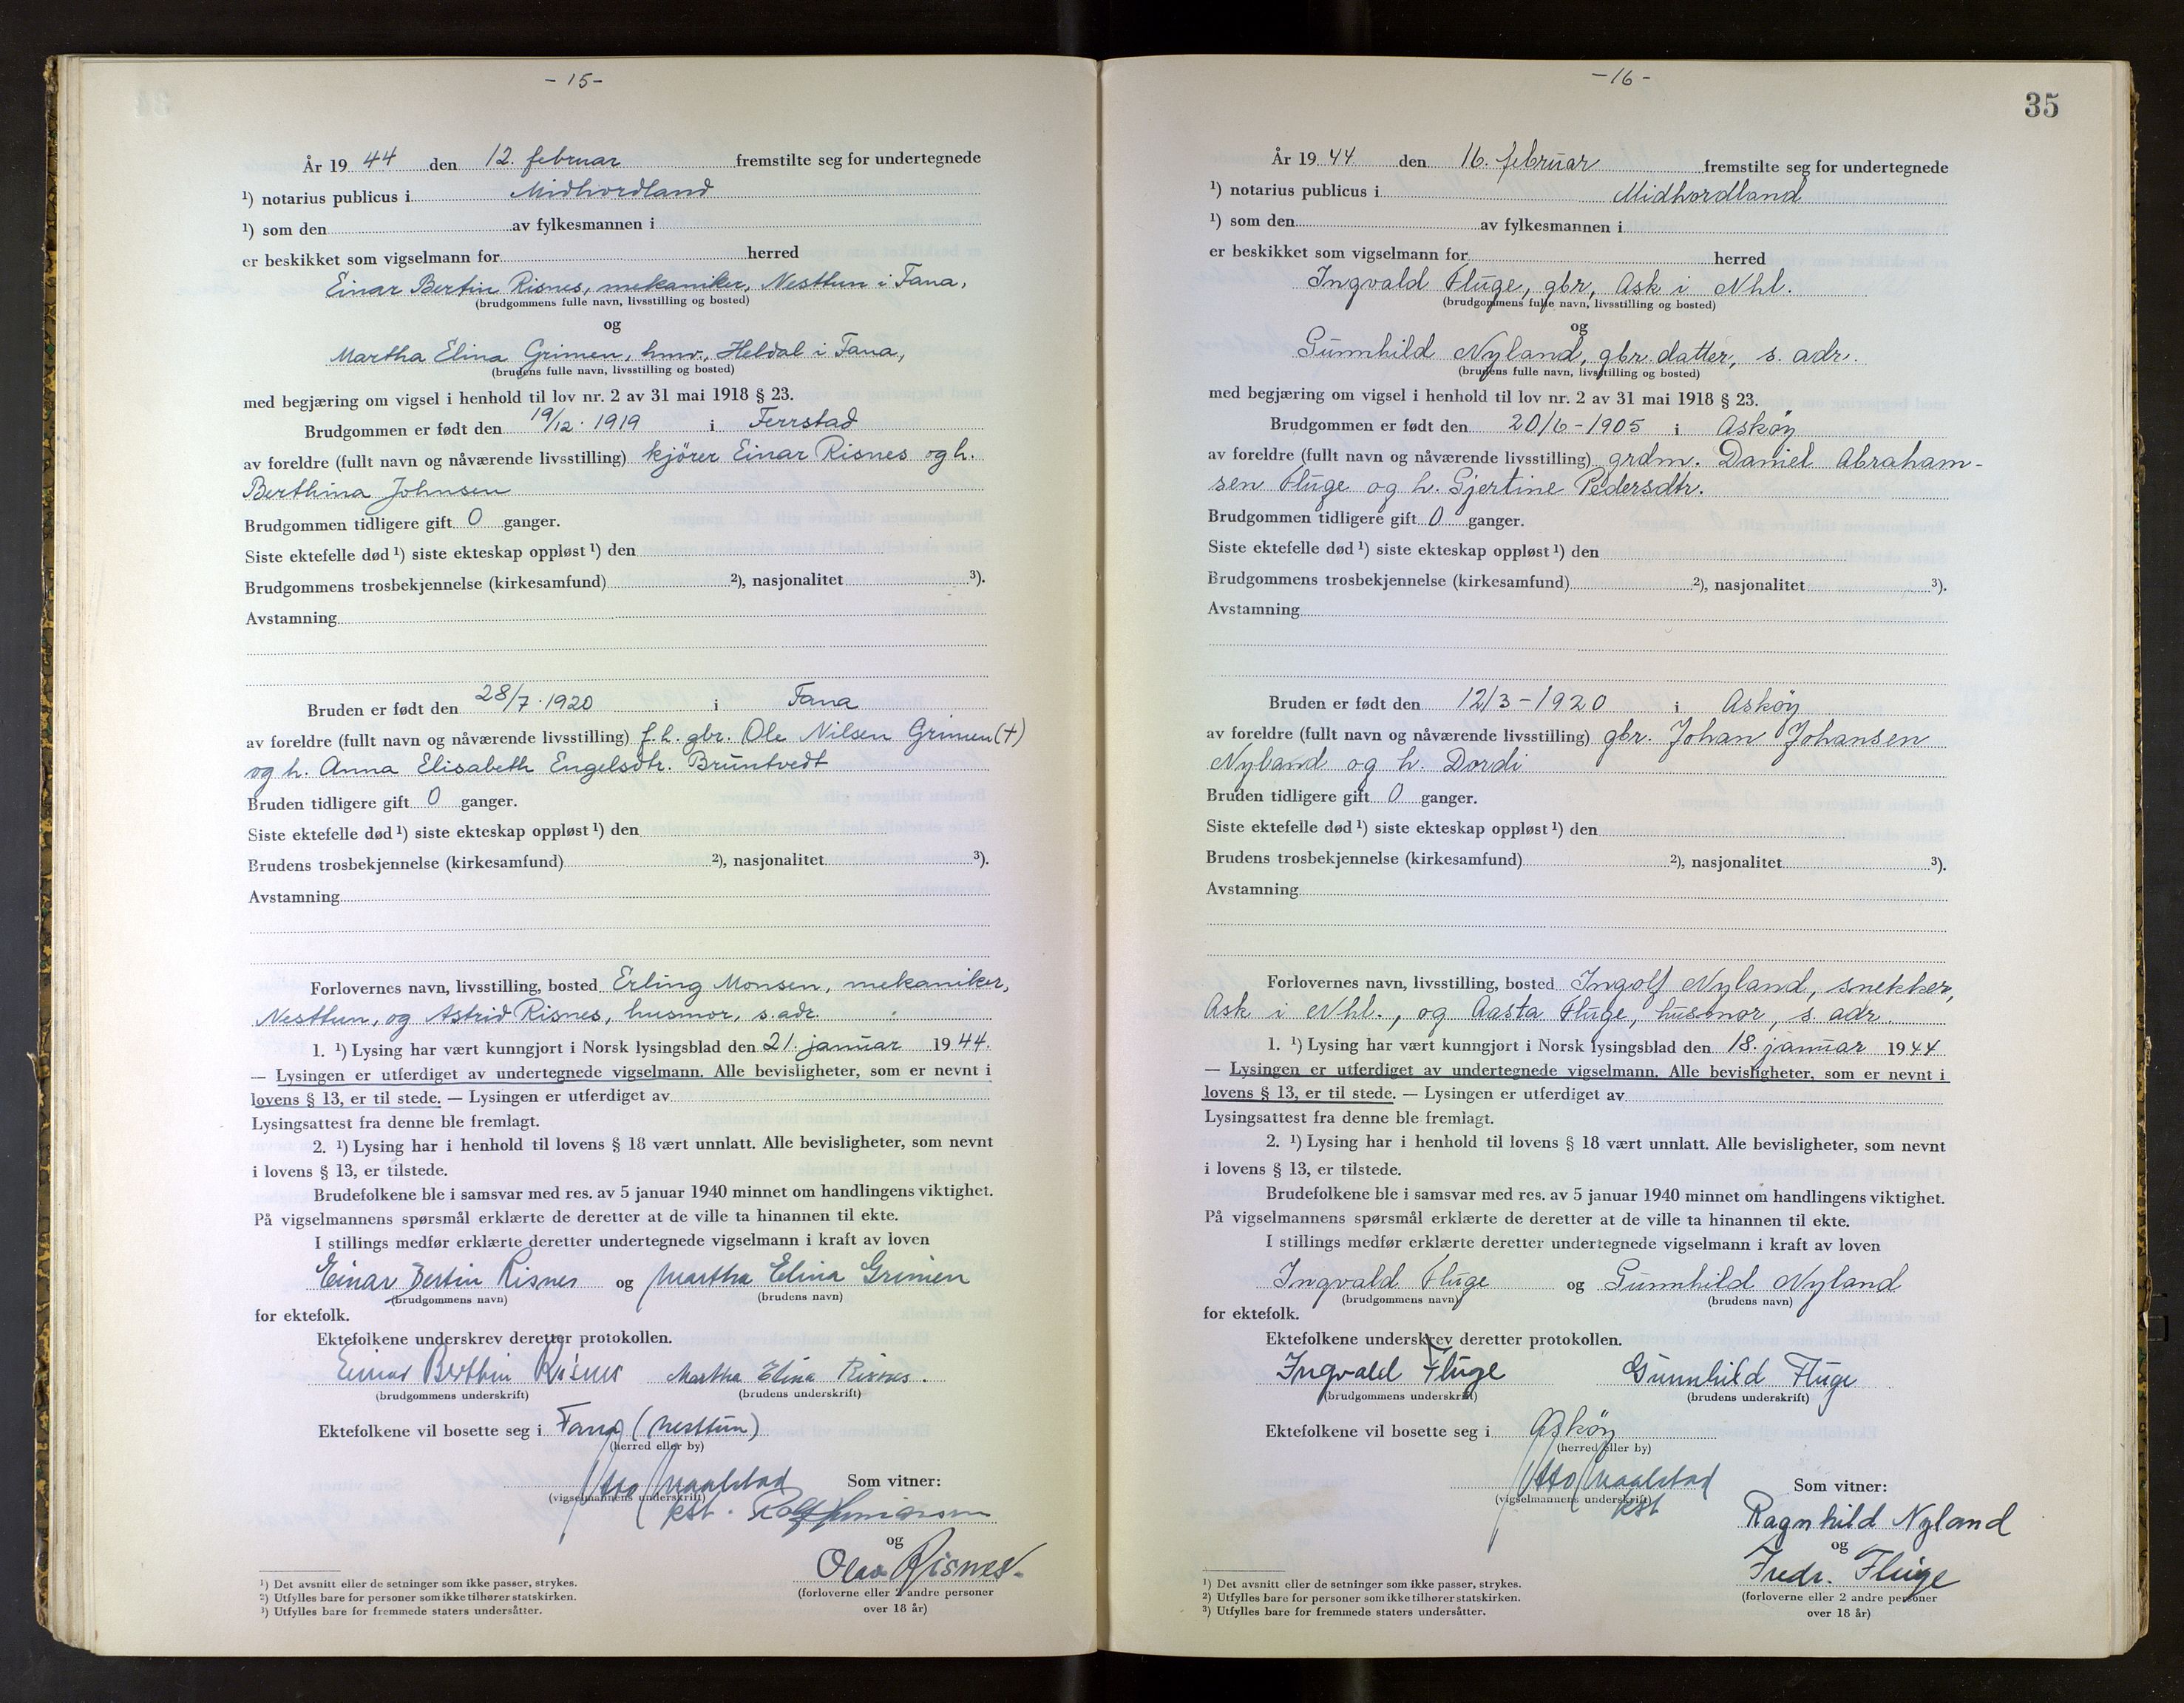 - 15 -
År 19 44 den 12. februar fremstilte seg for undertegnede
¹) notarius publicus i Midhordland
¹) som den av fylkesmannen i
er beskikket som vigselmann for herred
Einar Bertin Risnes, mekaniker, Nesttun i Fana,
(brudgommens fulle navn, livsstilling og bosted)
og
Martha Elina Grimen, hmv., Heldal i Fana,
(brudens fulle navn, livsstilling og bosted)
med begjæring om vigsel i henhold til lov nr. 2 av 31 mai 1918 § 23.
Brudgommen er født den 19/12. 1919 i Ferrstad
av foreldre (fullt navn og nåværende livsstilling) kjører Einar Risnes og h.
Berthina Johnsen
Brudgommen tidligere gift 0 ganger.
Siste ektefelle død ¹) siste ekteskap oppløst ¹) den
Brudgommens trosbekjennelse (kirkesamfund) ²), nasjonalitet ³).
Avstamning
Bruden er født den 28/7. 1920 i Fana
av foreldre (fullt navn og nåværende livsstilling) f.h. gbr. Ole Nilsen Grimen (+)
og h. Anna Elisabeth Engelsdtr. Bruntvedt
Bruden tidligere gift 0 ganger.
Siste ektefelle død ¹) siste ekteskap oppløst ¹) den
Brudens trosbekjennelse (kirkesamfund) ²), nasjonalitet ³).
Avstamning
Forlovernes navn, livsstilling, bosted Erling Monsen, mekaniker,
Nesttun, og Astrid Risnes, husmor, s. adr.
1. ¹) Lysing har vært kunngjort i Norsk lysingsblad den 21. januar 19 44.
— Lysingen er utferdiget av undertegnede vigselmann. Alle bevisligheter, som er nevnt i
lovens § 13, er til stede. — Lysingen er utferdiget av
Lysingsattest fra denne ble fremlagt.
2. ¹) Lysing har i henhold til lovens § 18 vært unnlatt. Alle bevisligheter, som nevnt
i lovens § 13, er tilstede.
Brudefolkene ble i samsvar med res. av 5 januar 1940 minnet om handlingens viktighet.
På vigselmannens spørsmål erklærte de deretter at de ville ta hinannen til ekte.
I stillings medfør erklærte deretter undertegnede vigselmann i kraft av loven
Einar Bertin Risnes og Martha Elina Grimen
(brudgommens navn) (brudens navn)
for ektefolk.
Ektefolkene underskrev deretter protokollen.
Einar Berthin Risnes Martha Elina Risnes.
(brudgommens underskrift) (brudens underskrift)
Ektefolkene vil bosette seg i Fana (Nesttun)
(herred eller by)
Otto Maalstad Som vitner:
(vigselmannens underskrift)
kst.
og
Olav Risnes.
(forloverne eller 2 andre personer
over 18 år)
¹) Det avsnitt eller de setninger som ikke passer, strykes.
²) Utfylles bare for personer som ikke tilhører statskirken.
³) Utfylles bare for fremmede staters undersåtter.
- 16 -
35
År 19 44 den 16. februar fremstilte seg for undertegnede
¹) notarius publicus i Midhordland
¹) som den av fylkesmannen i
er beskikket som vigselmann for herred
Ingvald Fluge, gbr, Ask i Nhl.
(brudgommens fulle navn, livsstilling og bosted)
og
Gunnhild Nyland, gbr. datter, s. adr.
(brudens fulle navn, livsstilling og bosted)
med begjæring om vigsel i henhold til lov nr. 2 av 31 mai 1918 § 23.
Brudgommen er født den 20/6 - 1905 i Askøy
av foreldre (fullt navn og nåværende livsstilling) grdm. Daniel Abraham-
sen Fluge og h. Gjertine Pedersdtr.
Brudgommen tidligere gift 0 ganger.
Siste ektefelle død ¹) siste ekteskap oppløst ¹) den
Brudgommens trosbekjennelse (kirkesamfund) ²), nasjonalitet ³).
Avstamning
Bruden er født den 12/3 - 1920 i Askøy
av foreldre (fullt navn og nåværende livsstilling) gbr. Johan Johansen
Nyland og h. Dordi
Bruden tidligere gift 0 ganger.
Siste ektefelle død ¹) siste ekteskap oppløst ¹) den
Brudens trosbekjennelse (kirkesamfund) ²), nasjonalitet ³).
Avstamning
Forlovernes navn, livsstilling, bosted Ingolf Nyland, snekker,
Ask i Nhl., og Aasta Fluge, husmor, s. adr.
1. ¹) Lysing har vært kunngjort i Norsk lysingsblad den 18. januar 19 44
— Lysingen er utferdiget av undertegnede vigselmann. Alle bevisligheter, som er nevnt i
lovens § 13, er til stede. — Lysingen er utferdiget av
Lysingsattest fra denne ble fremlagt.
2. ¹) Lysing har i henhold til lovens § 18 vært unnlatt. Alle bevisligheter, som nevnt
i lovens § 13, er tilstede.
Brudefolkene ble i samsvar med res. av 5 januar 1940 minnet om handlingens viktighet.
På vigselmannens spørsmål erklærte de deretter at de ville ta hinannen til ekte.
I stillings medfør erklærte deretter undertegnede vigselmann i kraft av loven
Ingvald Fluge og Gunnhild Nyland
(brudgommens navn) (brudens navn)
for ektefolk.
Ektefolkene underskrev deretter protokollen.
Ingvald Fluge Gunnhild Fluge
(brudgommens underskrift) (brudens underskrift)
Ektefolkene vil bosette seg i Askøy
(herred eller by)
Otto Maalstad Som vitner:
(vigselmannens underskrift)
kst
Ragnhild Nyland
og
Fredr. Fluge
(forloverne eller 2 andre personer
over 18 år)
¹) Det avsnitt eller de setninger som ikke passer, strykes.
²) Utfylles bare for personer som ikke tilhører statskirken.
³) Utfylles bare for fremmede staters undersåtter.